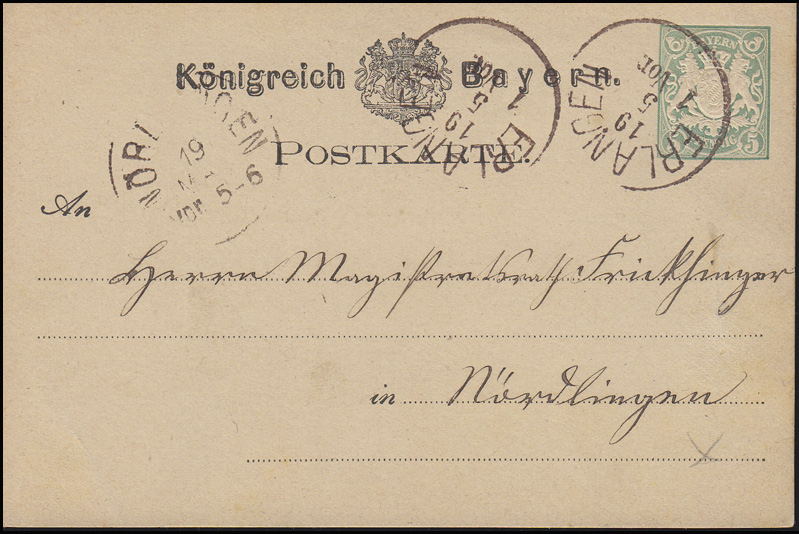 Königreich Bayern.
BAYERN
5
POSTKARTE.
ERLANGEN
19
5
1
ERLANGEN
19
5
1
19
5-6
An
Herrn Magistratsrath Frickhinger
in Nördlingen